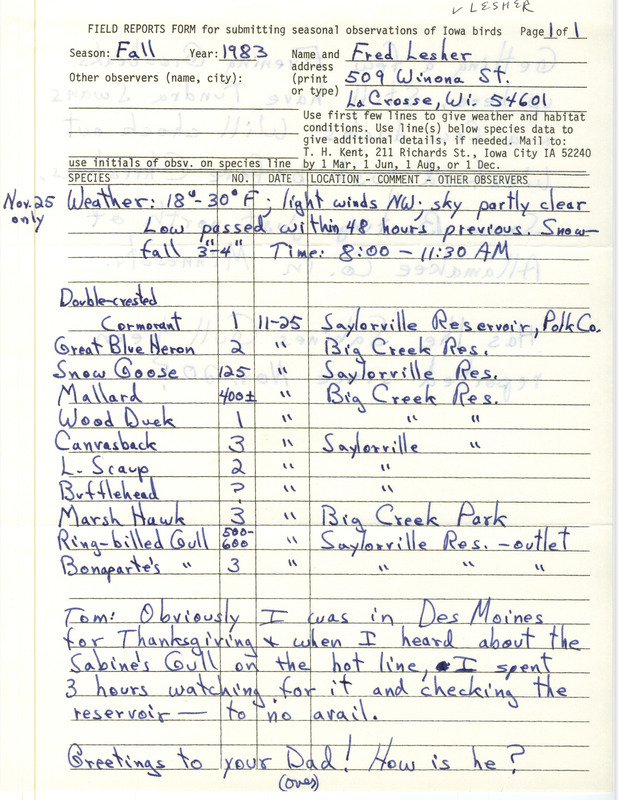 ✓ LESHER
FIELD REPORTS FORM for submitting seasonal observations of Iowa birds Page 1 of 1
Season: Fall Year: 1983 Name and Fred Lesher
address
Other observers (name, city): (print 509 Winona St.
or type)
LaCrosse, Wi. 54601
Use first few lines to give weather and habitat
conditions. Use line(s) below species data to
give additional details, if needed. Mail to:
T. H. Kent, 211 Richards St., Iowa City IA 52240
use initials of obsv. on species line by 1 Mar, 1 Jun, 1 Aug, or 1 Dec.
SPECIES NO. DATE LOCATION - COMMENT - OTHER OBSERVERS
Nov. 25 only
Weather: 18° - 30° F; light winds NW; sky partly clear
Low passed within 48 hours previous. Snow-
fall 3"-4" Time: 8:00 - 11:30 AM
Double-crested
Cormorant 1 11-25 Saylorville Reservoir, Polk Co.
Great Blue Heron 2 " Big Creek Res.
Snow Goose 125 " Saylorville Res.
Mallard 400± " Big Creek Res.
Wood Duck 1 " " "
Canvasback 3 " Saylorville "
L. Scaup 2 " "
Bufflehead ? " "
Marsh Hawk 3 " Big Creek Park
Ring-billed Gull 500-600 " Saylorville Res. - outlet
Bonaparte's " 3 " " " "
Tom: Obviously I was in Des Moines
for Thanksgiving & when I heard about the
Sabine's Gull on the hot line, I spent
3 hours watching for it and checking the
reservoir — to no avail.
Greetings to your Dad! How is he?
(over)